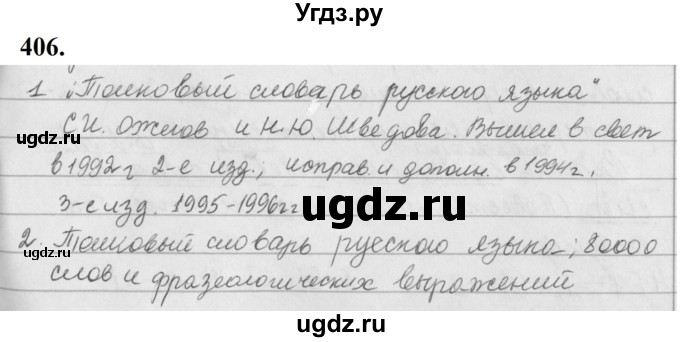 Угдз.ру
406.
1 „Толковый словарь русского языка"
С.И. Ожегов и Н.Ю. Шведова. Вышел в свет
в 1992 г 2-е изд., исправ. и дополн. в 1994 г.
3-е изд. 1995-1996 гг
2. Толковый словарь русского языка; 80000
слов и фразеологических выражений
ugdz.ru
ugdz.ru
ugdz.ru
ugdz.ru
ugdz.ru
ugdz.ru
ugdz.ru